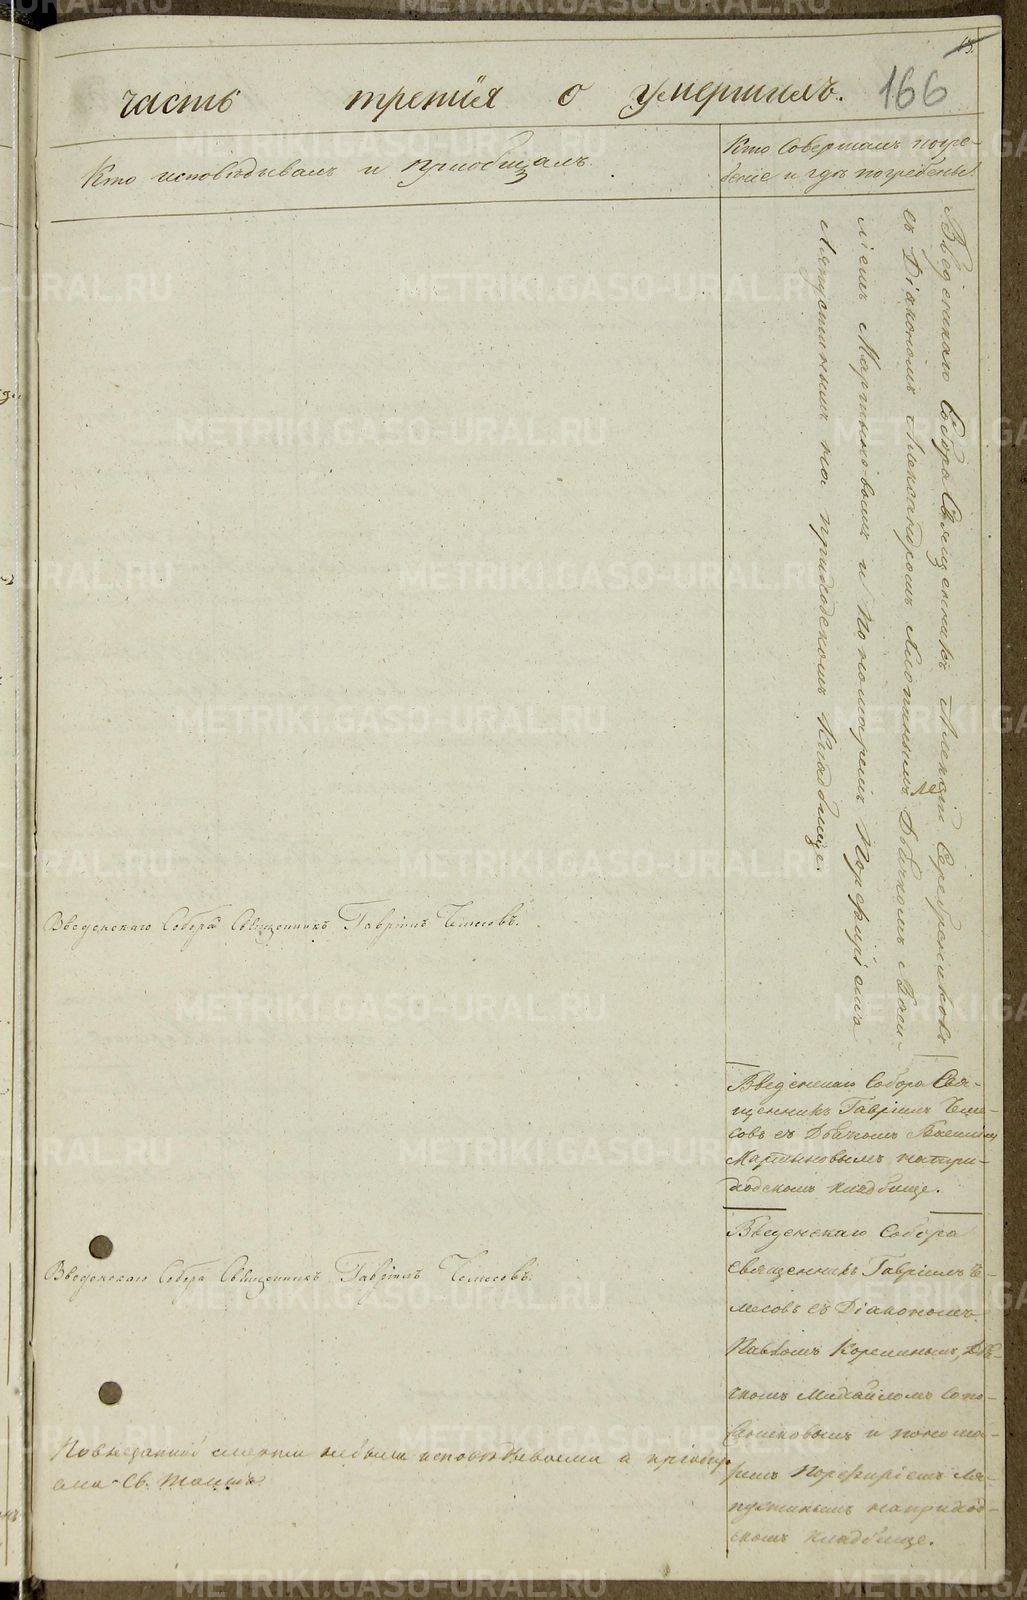 13.
166
часть третія о умершихъ.
Кто исповѣдывалъ и приобщалъ.
Кто совершалъ погре-
беніе и гдѣ погребены.
Введенскаго Собора Священникъ Алексій Серебренниковъ
съ Діакономъ Александромъ Дьячкомъ Васи-
ліемъ Мартыновымъ и пономаремъ Порфиріемъ
Ляпустинымъ на приходскомъ Кладбище.
Введенскаго Собора Священникъ Гавріилъ Чемесовъ.
Введенскаго Собора Свя-
щенникъ Гавріилъ Чеме-
совъ съ Дьячкомъ Василіем
Мартыновымъ на при-
ходскомъ кладбище.
Введенскаго Собора Священникъ Гавріилъ Чемесовъ.
Введенскаго Собора
священникъ Гавріилъ Че-
месовъ съ Діакономъ
Павломъ Корелинымъ, Дья-
чкомъ Михайломъ Сапо-
жниковымъ и понома-
ремъ Порфиріемъ Ля-
пустинымъ на приход-
скомъ кладбище.
По внезапной смерти небыли исповѣдываемы и приобщ
аны Св. Таинъ
METRIKI.GASO-URAL.RU